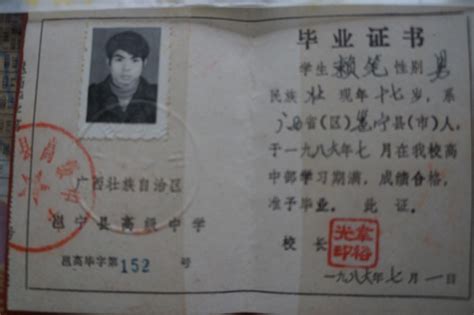 广西壮族自治区
邕宁县高级中学
邕高毕字第152号
毕业证书
学生赖笔性别男
民族壮现年十七岁，系
广西省(区)邕宁县(市)人，
于一九八六年七月在我校高
中部学习期满，成绩合格，
准予毕业。此证。
校长
一九八六年七月一日